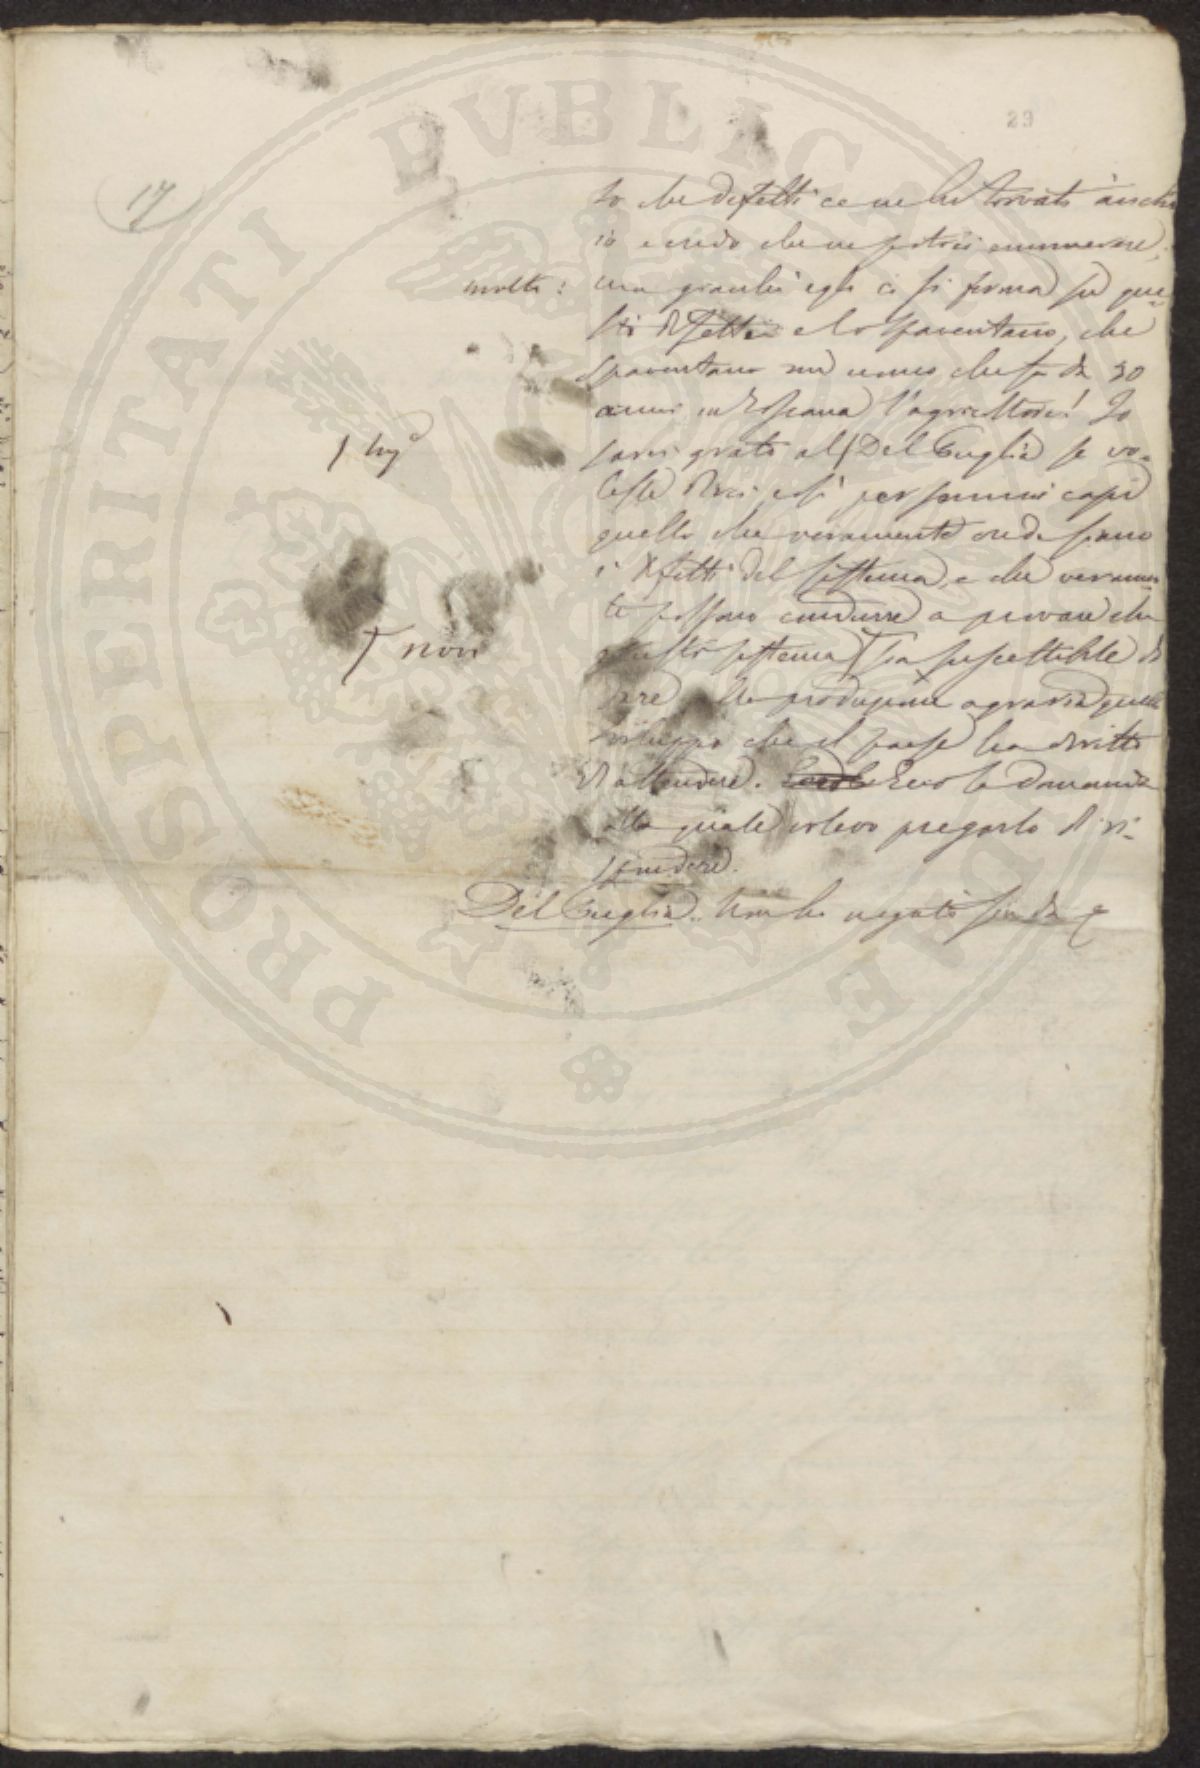 23
17
so che difetti ce ne ho trovati anch'
io e credo che ne potrei enumerare
molti: ma giacchè egli ci si ferma su que-
sti difetti e lo spaventano, che
spaventano un uomo che fa da 30
anni in Toscana l'agricoltore! Io
/ Sig.r
sarei grato al / Del Puglia se vo-
lesse dirci così per sommi capi
quello che veramente crede siano
i difetti del sistema, e che veramen
te possano condurre a provare che
T non
questo sistema T sia suscettibile di
dare alla produzione agraria quello
sviluppo che il paese ha diritto
di attendere. Ecco la domanda
alla quale volevo pregarlo di ri-
spondere.
Del Puglia. Non ho negato sin da
PROSPERITATI PVBLICAE AVGENDAE